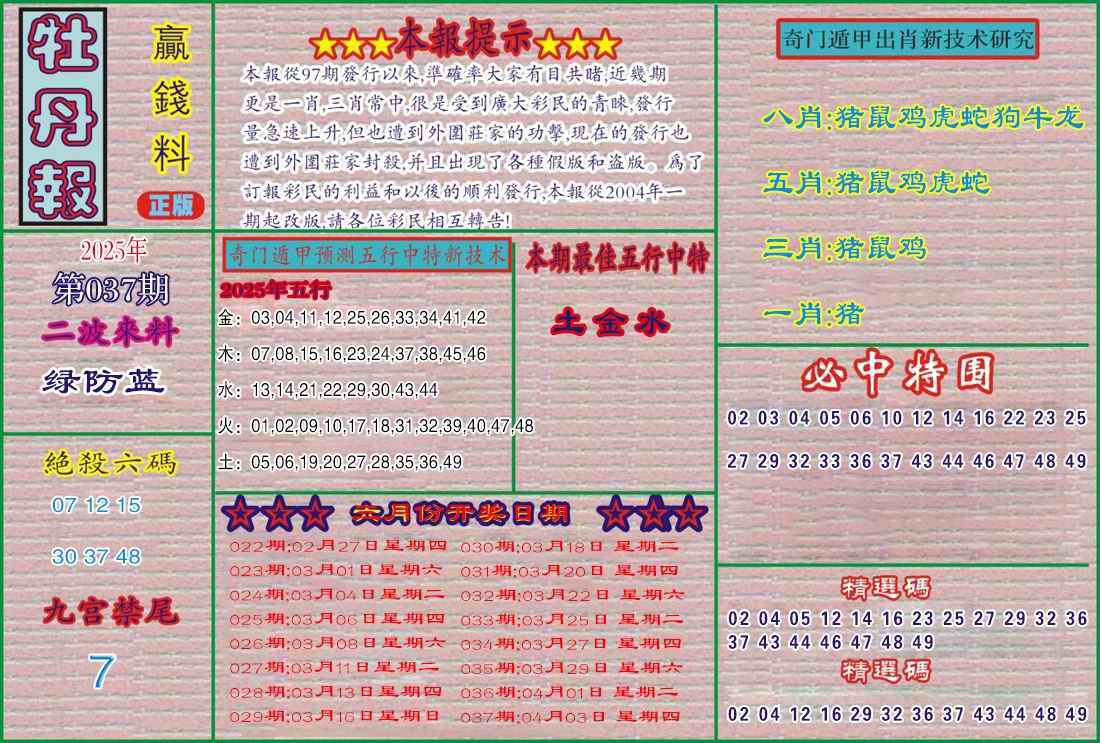 牡丹報
贏錢料
正版
2025年
第037期
二波來料
绿防蓝
絕殺六碼
07 12 15
30 37 48
九宫禁尾
7
★★★本報提示★★★
本報從97期發行以來,準確率大家有目共睹,近幾期
更是一肖,三肖常中,很是受到廣大彩民的青睞,發行
量急速上升,但也遭到外圍莊家的功擊,現在的發行也
遭到外圍莊家封殺,并且出現了各種假版和盗版。爲了
訂報彩民的利益和以後的順利發行,本報從2004年一
期起改版,請各位彩民相互轉告!
奇门遁甲预测五行中特新技术
2025年五行
金：03,04,11,12,25,26,33,34,41,42
木：07,08,15,16,23,24,37,38,45,46
水：13,14,21,22,29,30,43,44
火：01,02,09,10,17,18,31,32,39,40,47,48
土：05,06,19,20,27,28,35,36,49
本期最佳五行中特
土金水
☆☆☆ 六月份开奖日期 ☆☆☆
022期:02月27日星期四 030期:03月18日 星期二
023期:03月01日星期六 031期:03月20日 星期四
024期:03月04日星期二 032期:03月22日 星期六
025期:03月06日星期四 033期:03月25日 星期二
026期:03月08日星期六 034期:03月27日 星期四
027期:03月11日星期二 035期:03月29日 星期六
028期:03月13日星期四 036期:04月01日 星期二
029期:03月16日星期日 037期:04月03日 星期四
奇门遁甲出肖新技术研究
八肖:猪鼠鸡虎蛇狗牛龙
五肖:猪鼠鸡虎蛇
三肖:猪鼠鸡
一肖:猪
必中特围
02 03 04 05 06 10 12 14 16 22 23 25
27 29 32 33 36 37 43 44 46 47 48 49
精選碼
02 04 05 12 14 16 23 25 27 29 32 36
37 43 44 46 47 48 49
精選碼
02 04 12 16 29 32 36 37 43 44 48 49